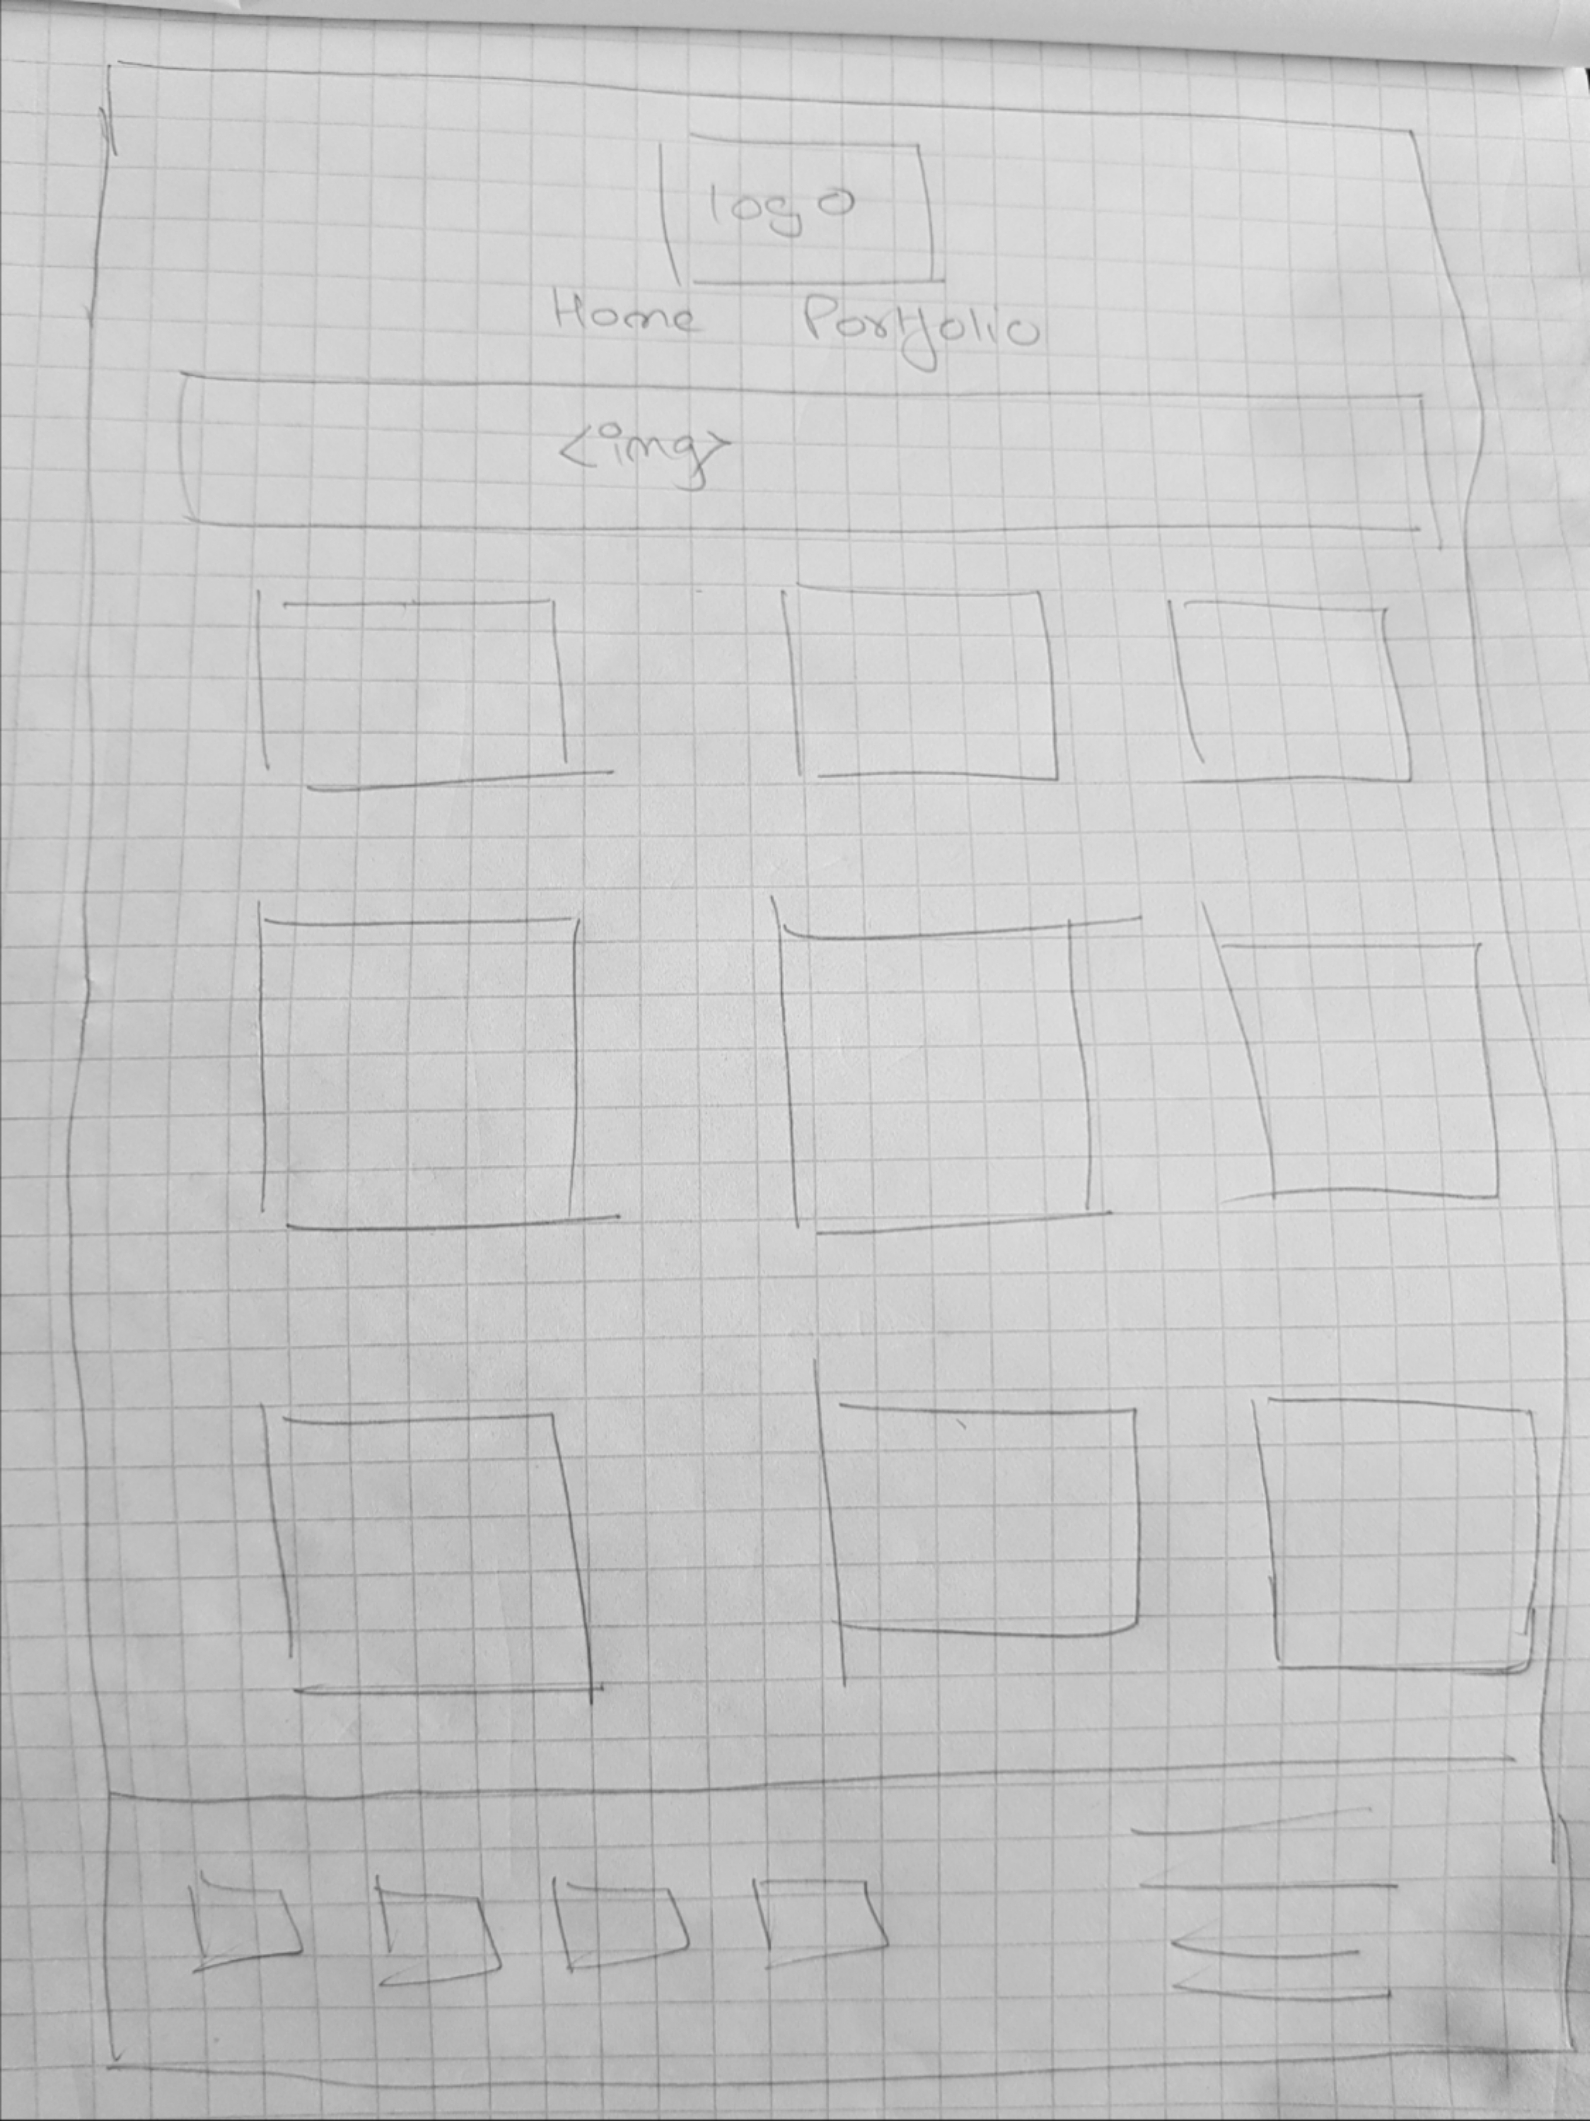 logo
Home Portfolio
<img>